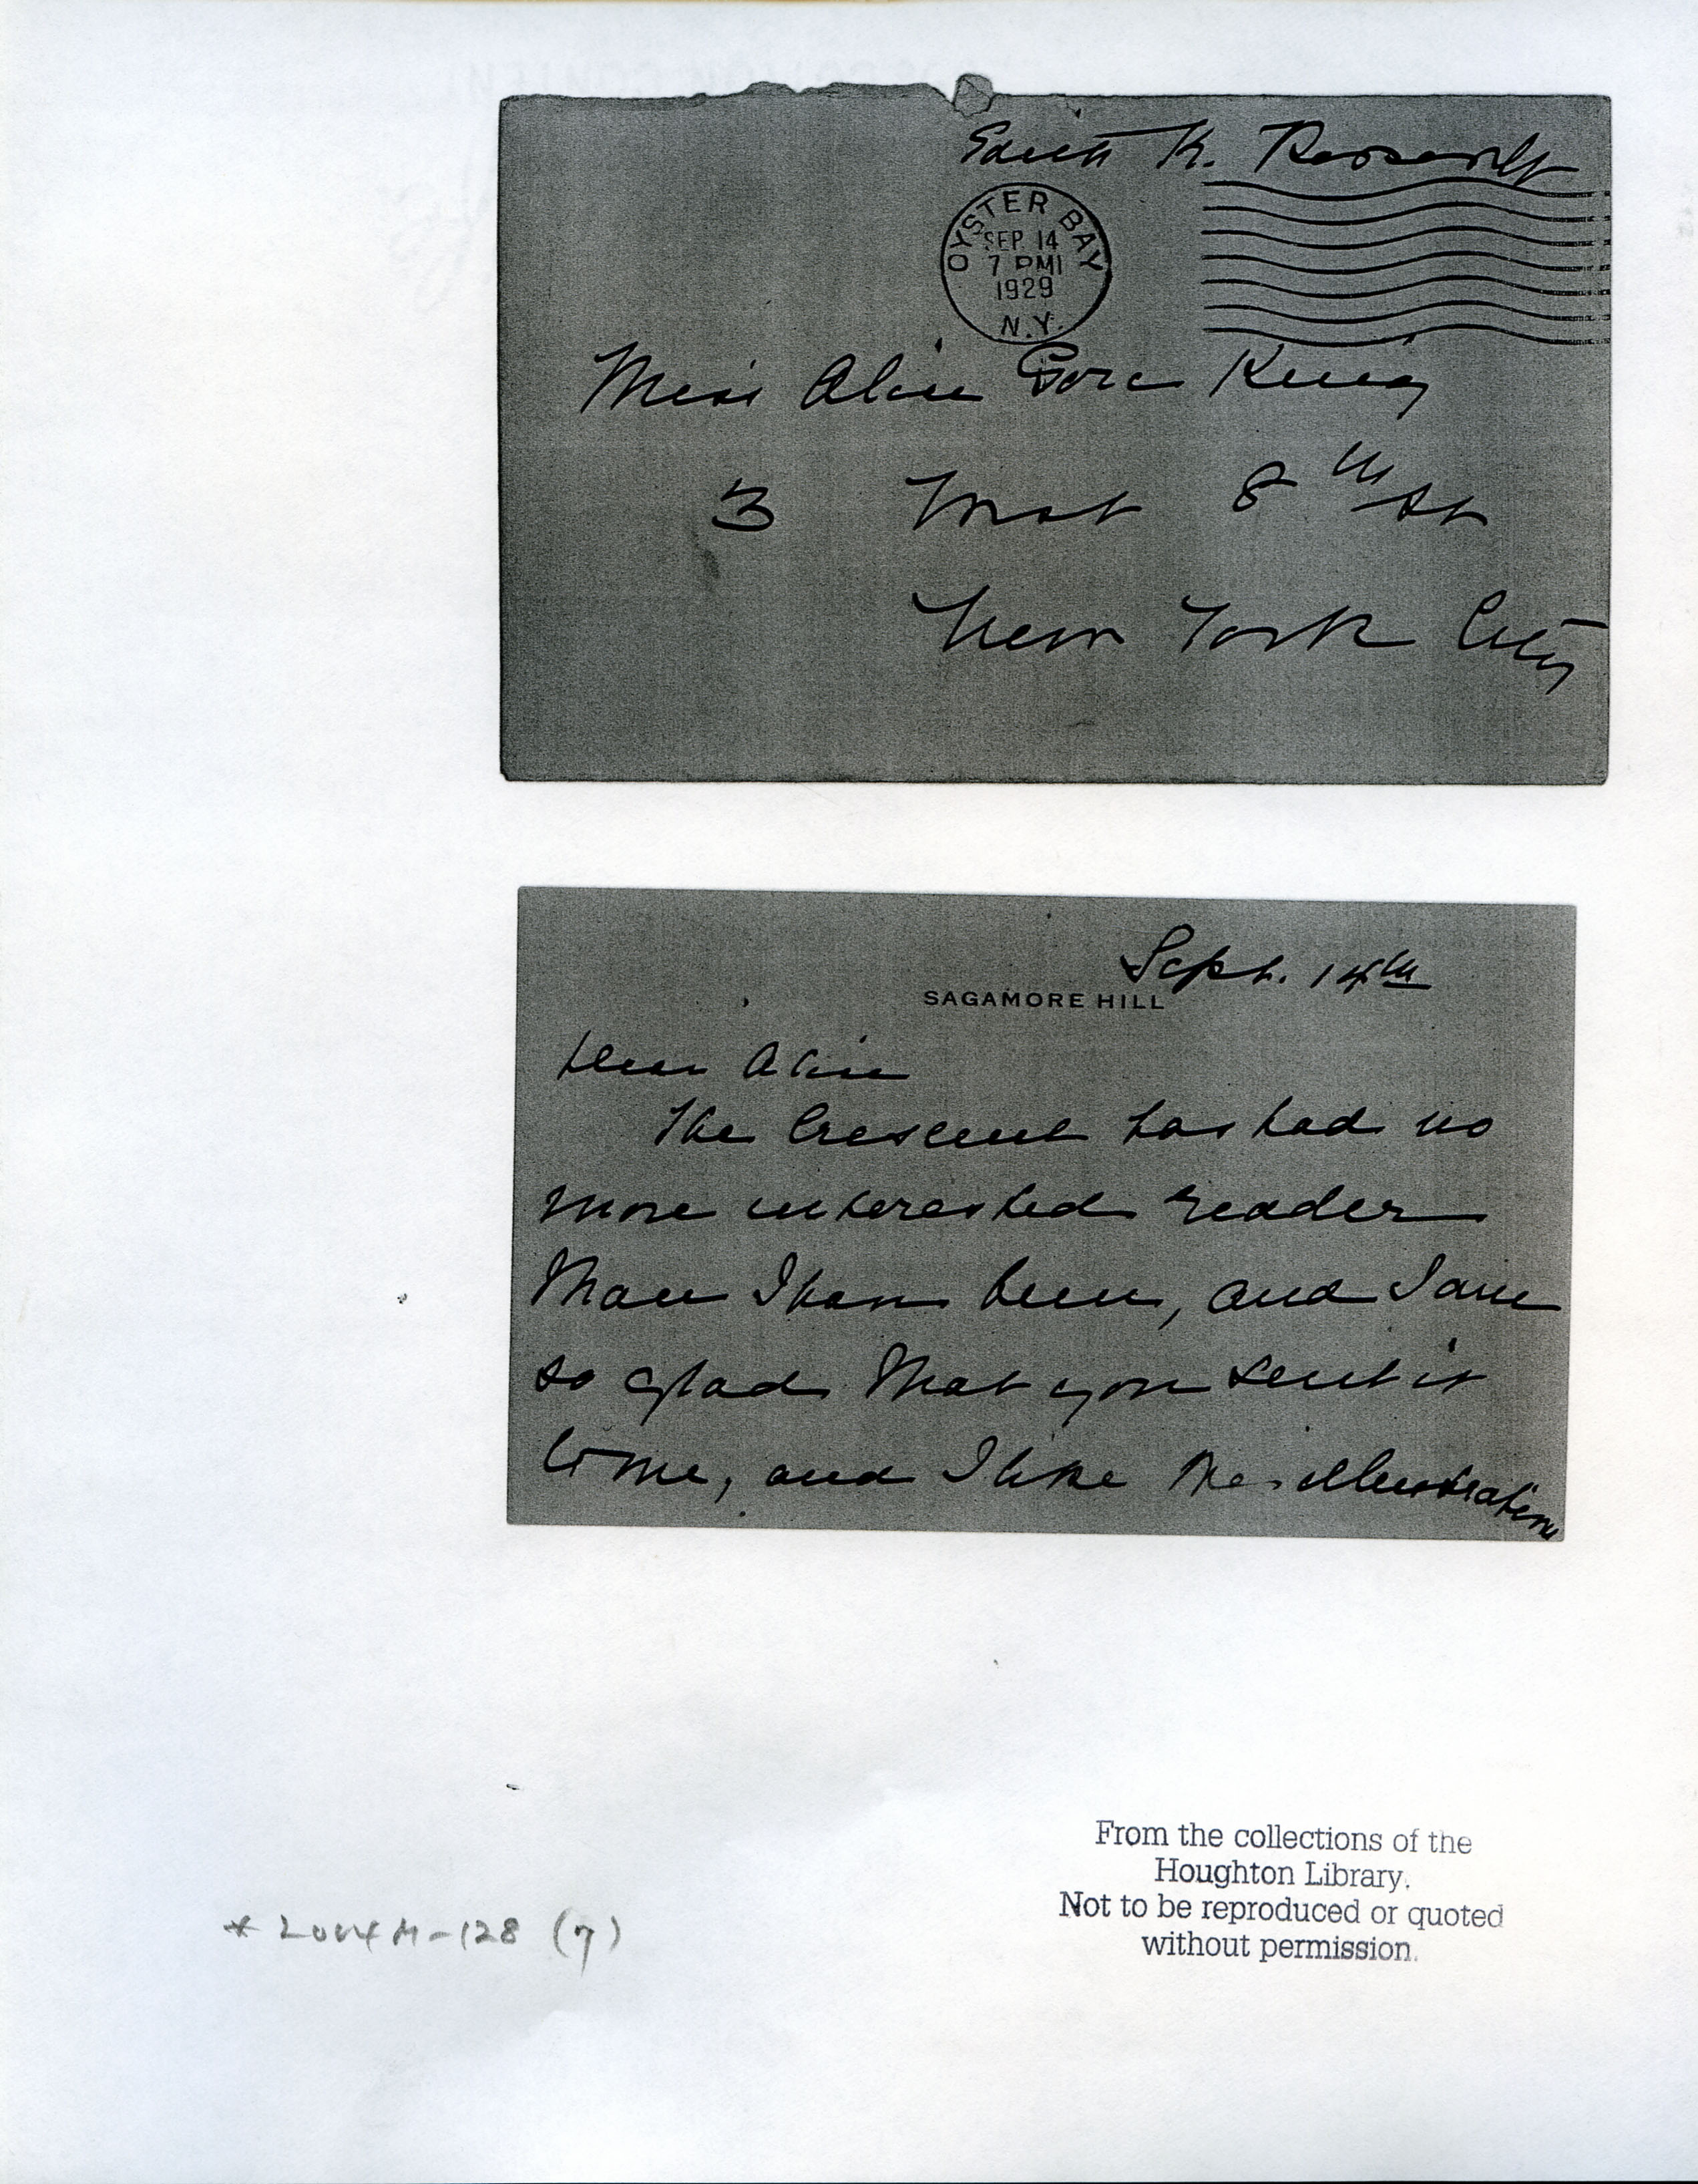 Edith K. Roosevelt
OYSTER BAY
SEP. 14
7 PM
1929
N.Y.
Miss Alice Gore King
3 West 8th St
New York City
Sept. 14th
SAGAMORE HILL
Dear Alice
The Crescent has had no
more interested reader
than I have been, and I am
so glad that you sent it
to me, and I like the illustrations
From the collections of the
Houghton Library.
Not to be reproduced or quoted
without permission.
*2004M-128 (7)